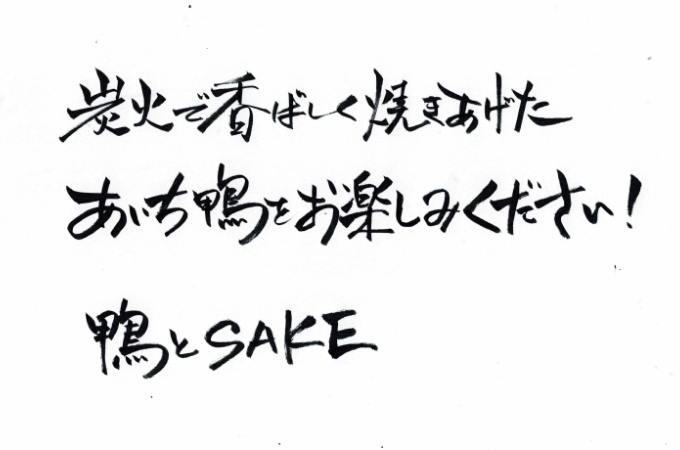 炭火で香ばしく焼きあげた
あいち鴨をお楽しみください!
鴨とSAKE